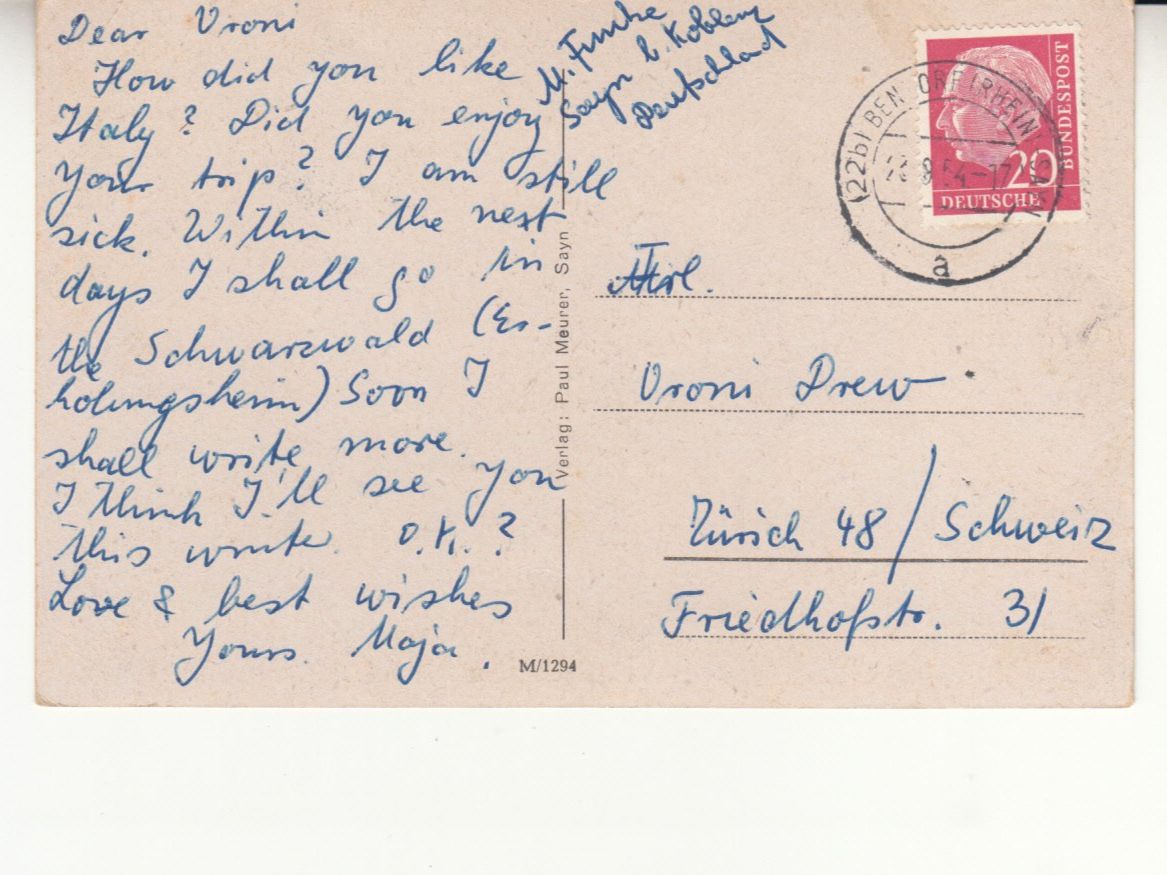 Dear Vroni
How did you like
Italy? Did you enjoy
your trip? I am still
sick. Within the next
days I shall go in
the Schwarzwald (Er-
holungsheim) Soon I
shall write more.
I think I'll see you
this winter. O.K.?
Love & best wishes
Yours Maja.
M. Funke
Sayn b. Koblenz
Deutschlad
Verlag: Paul Meurer, Sayn
M/1294
BUNDESPOST
20
DEUTSCHE
(22b) BENDORF (RHEIN)
SAYN
54-17
a
Frl.
Vroni Drew
Zürich 48 / Schweiz
Friedhofstr. 31